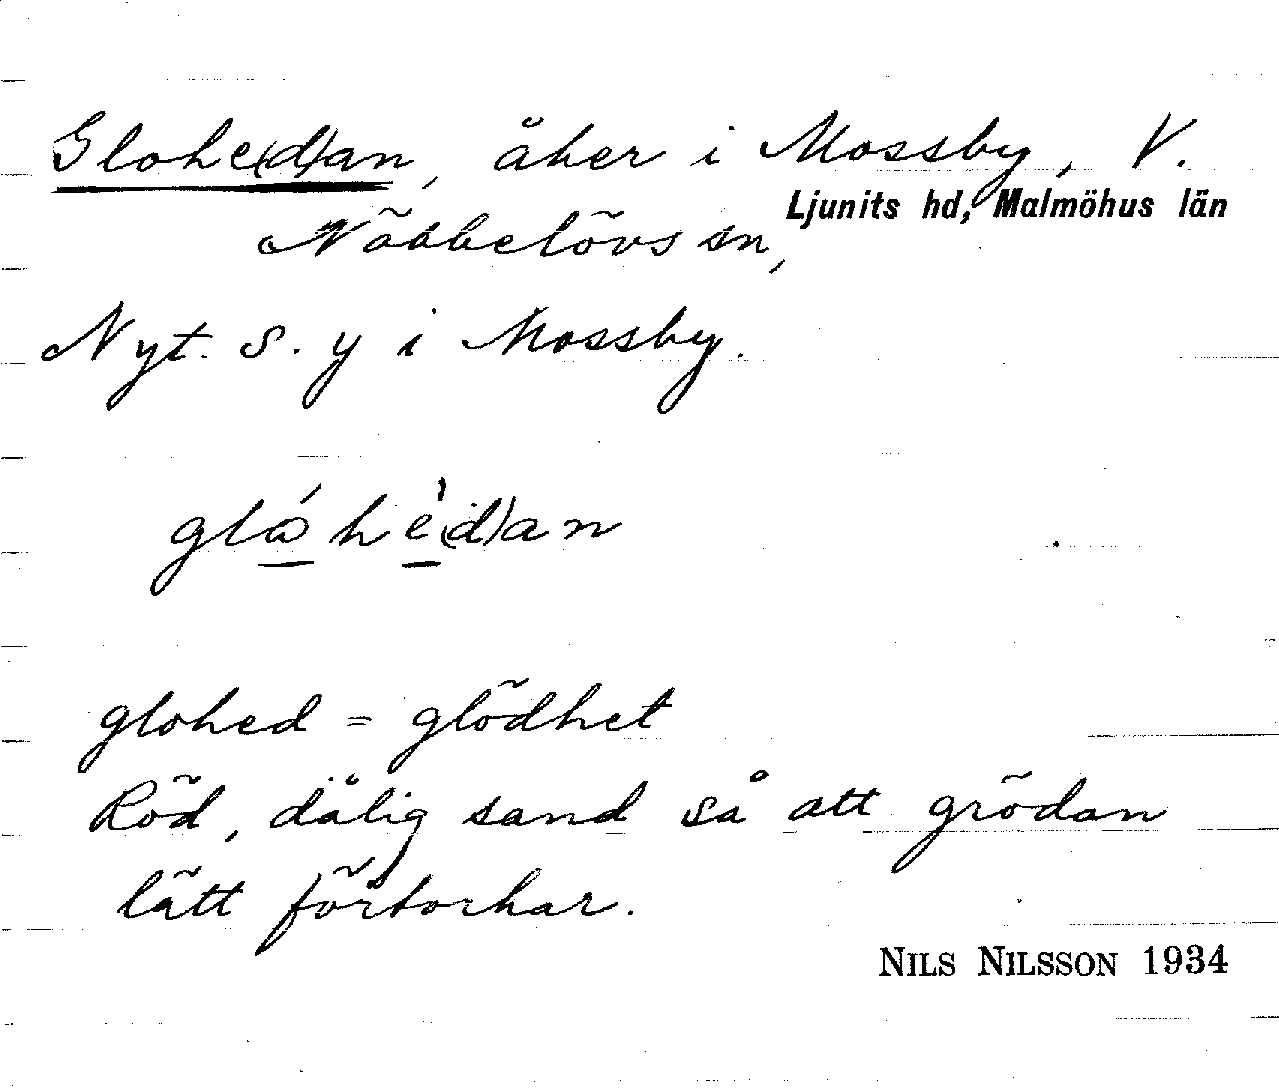 Glohe(d)an, åker i Mossby, V.
Ljunits hd, Malmöhus län
Nöbbelövs sn,
Nyt. S. y i Mossby.
glóhè(d)an
glohed = glödhet
Röd, dålig sand så att grödan
lätt förtorkar.
NILS NILSSON 1934